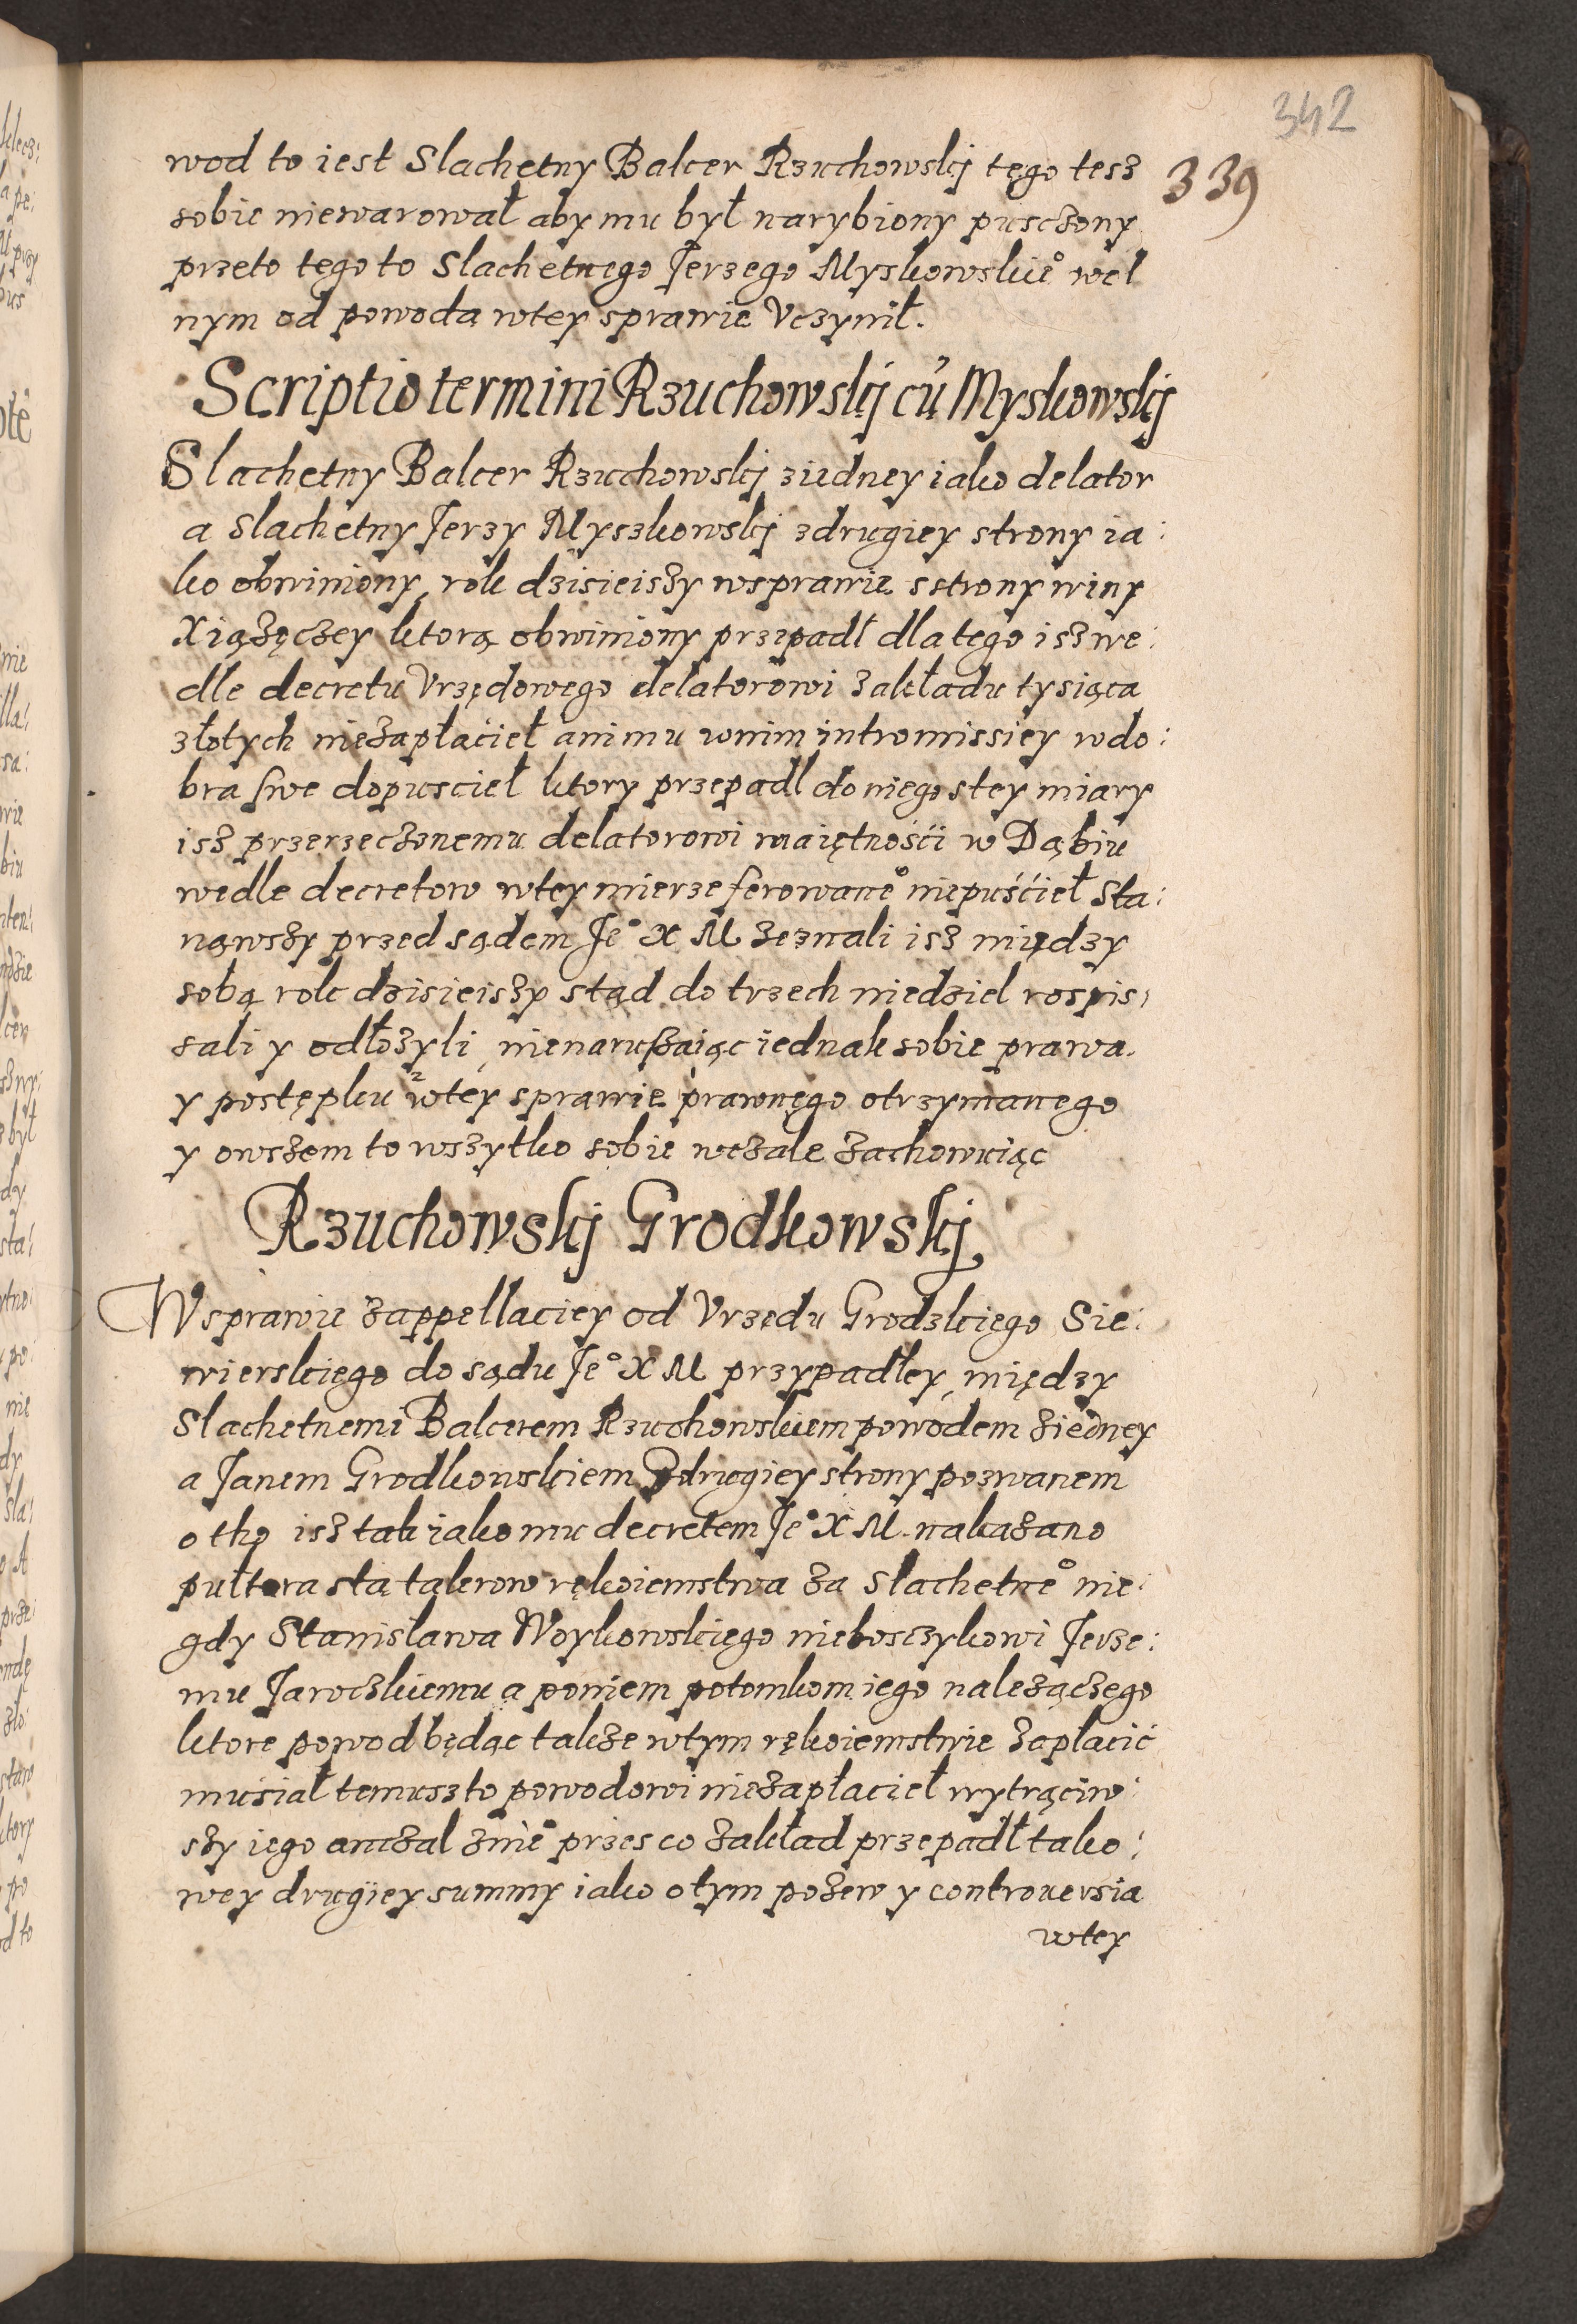 342
339
wod to iest Slachetny Balcer Rzuchowskj tego tesz
sobie niewarował aby mu był narybiony pusczony
przeto tego to Slachetnego Jerzego Myskowskie° wol
nym od powoda wtey sprawie Vczynił.
Scriptio termini Rzuchowskj cũ Myskowskj
Slachetny Balcer Rzuchowskj ziedney iako delator
a Slachetny Jerzy Myszkowskj zdrugiey strony ia:
ko obwiniony, rok dzisieiszy wsprawie sstrony winy
Xiązęczey ktorą obwiniony przepadł dla tego isz we:
dle decretu Vrzędowego delatorowi zakładu tysiąca
złotych niezapłacieł ani mu wnim intromissiey wdo:
bra swe dopuscieł ktory przepadl do niego stey miary
isz przerzeczonemu delatorowi maiętnosci w Dąbiu
wedle decretow wtey mierze ferowane° niepuścieł Sta:
nąwszy przed sądem Je° X M zeznali isz między
sobą rok dzisieiszy stąd do trzech niedziel rospis:
sali y odłozyli, nienaruszaiąc iednak sobie prawa.
y postępku wtey sprawie prawnego otrzymanego
y owszem to wszytko sobie wczale zachowuiąc
Rzuchowskj Grodkowskj.
Wsprawie zappellaciey od Vrzedu Grodzkiego Sie:
wierskiego do sądu Je° X M przypadłey, między
Slachetnemi Balcerem Rzuchowskiem powodem ziedney
a Janem Grodkowskiem zdrugiey strony pozwanem
o tho isz tak iako mu decretem Je° X M. nakazano
pułtora sta talerow rękoiemstwa za Slachetne° nie:
gdy Stanisława Woykowskiego nieboszczykowi Jerze:
mu Jaroczkiemu a poniem potomkom iego nalezączego
ktore powod będąc takze wtym rękoiemstwie zapłacić
musiał temuszto powodowi niezapłacieł wytrąciw:
szy iego anczal znie° przes co zakład przepadł tako:
wey drugiey summy iako otym pozew y controuersia
wtey